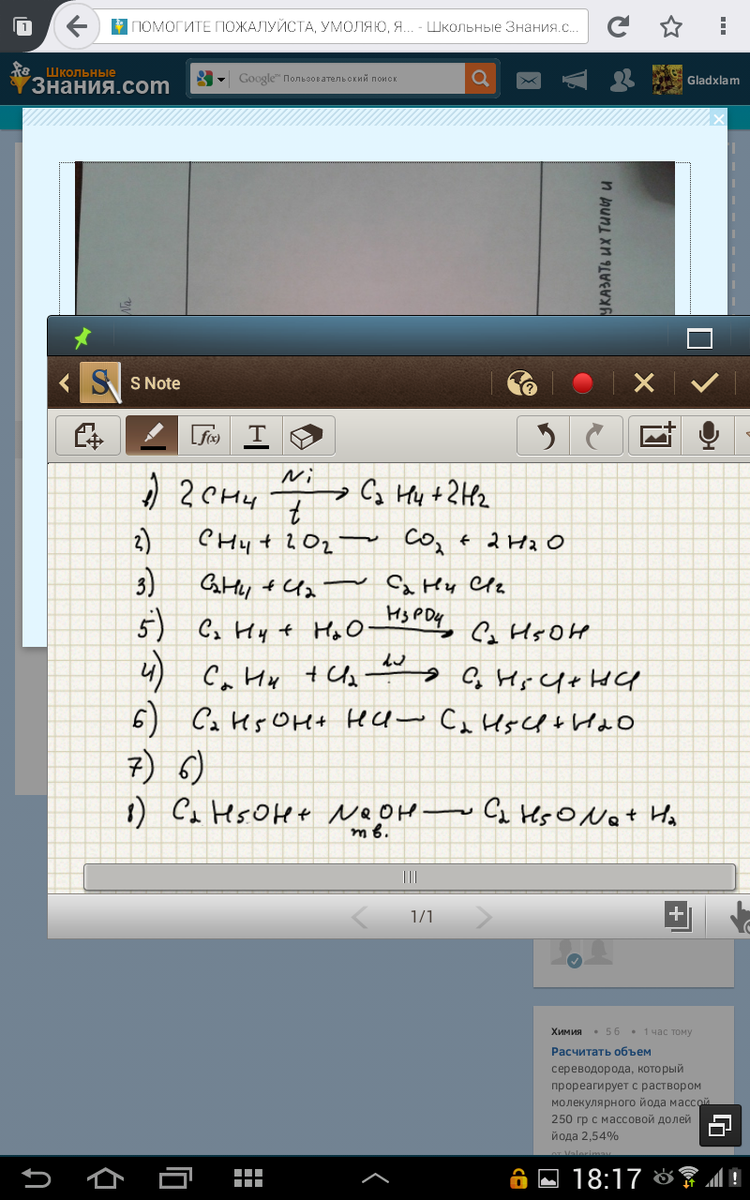 1
ПОМОГИТЕ ПОЖАЛУЙСТА, УМОЛЯЮ, Я... - Школьные Знания.с...
Школьные
Знания.com
Google™ Пользовательский поиск
Gladxlam
УКАЗАТЬ ИХ ТИПЫ И
Na
S Note
f(x)
T
1) 2CH4 Ni t → C2H4 + 2H2
2) CH4 + 2O2 — CO2 + 2H2O
3) C2H4 + Cl2 — C2H4Cl2
5) C2H4 + H2O H3PO4 → C2H5OH
4) C2H4 + Cl2 → C2H5Cl + HCl
6) C2H5OH + HCl — C2H5Cl + H2O
7) 6)
8) C2H5OH + NaOH — C2H5ONa + H2
тв.
1/1
Химия • 5 б • 1 час тому
Расчитать объем
сереводорода, который
прореагирует с раствором
молекулярного йода массой
250 гр с массовой долей
йода 2,54%
от Valerimay
18:17